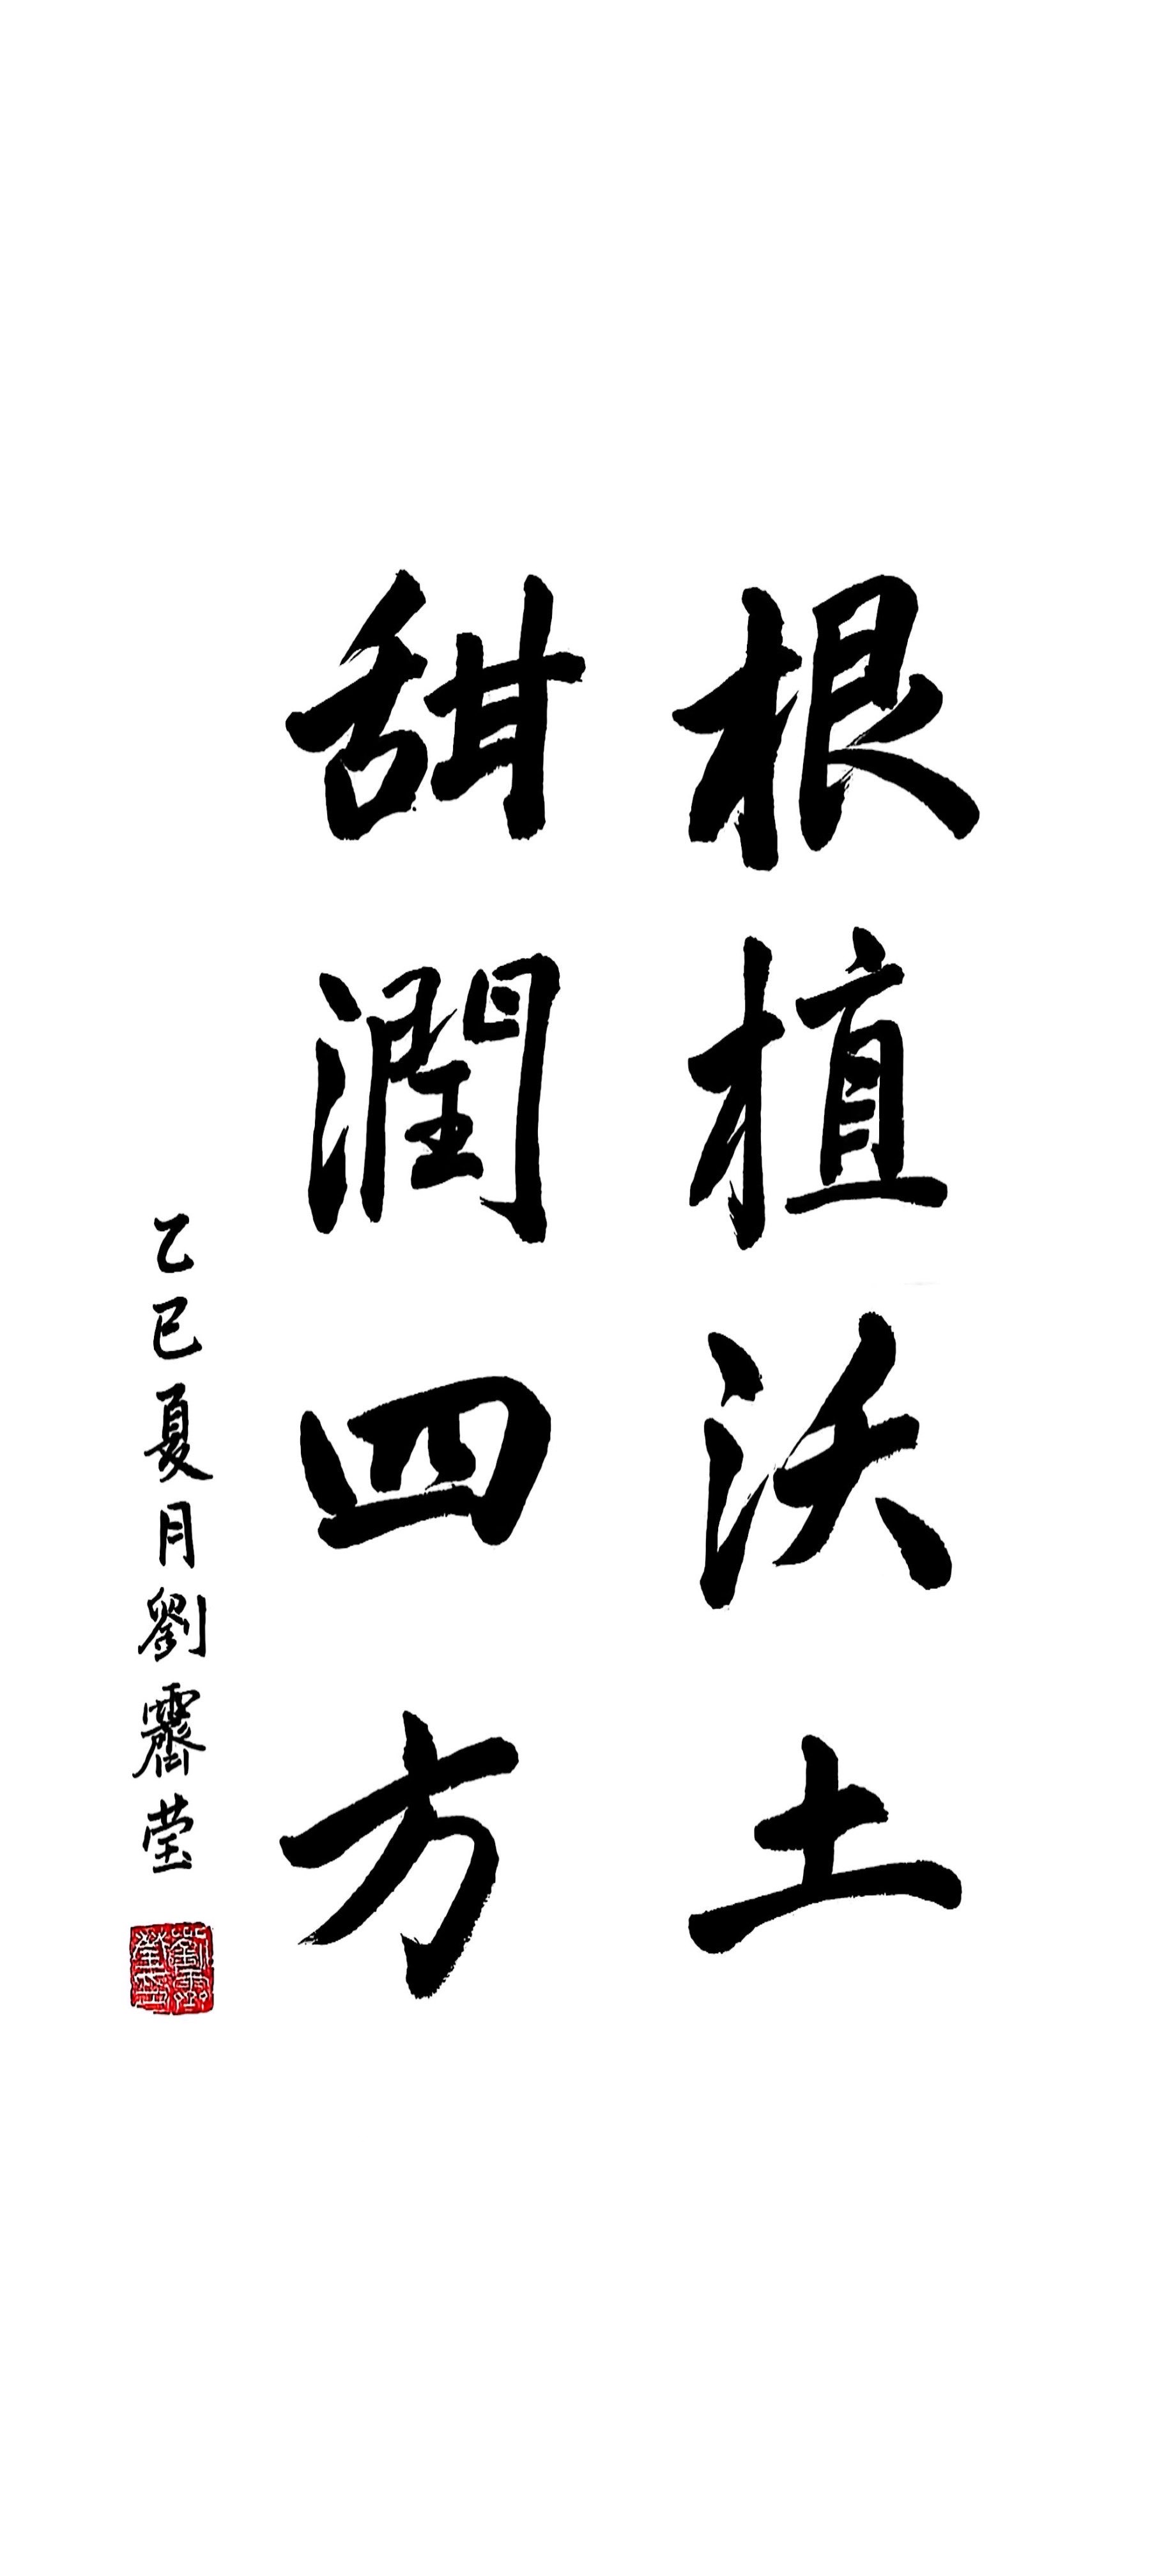 根植沃土
甜潤四方
乙巳夏月劉霽莹